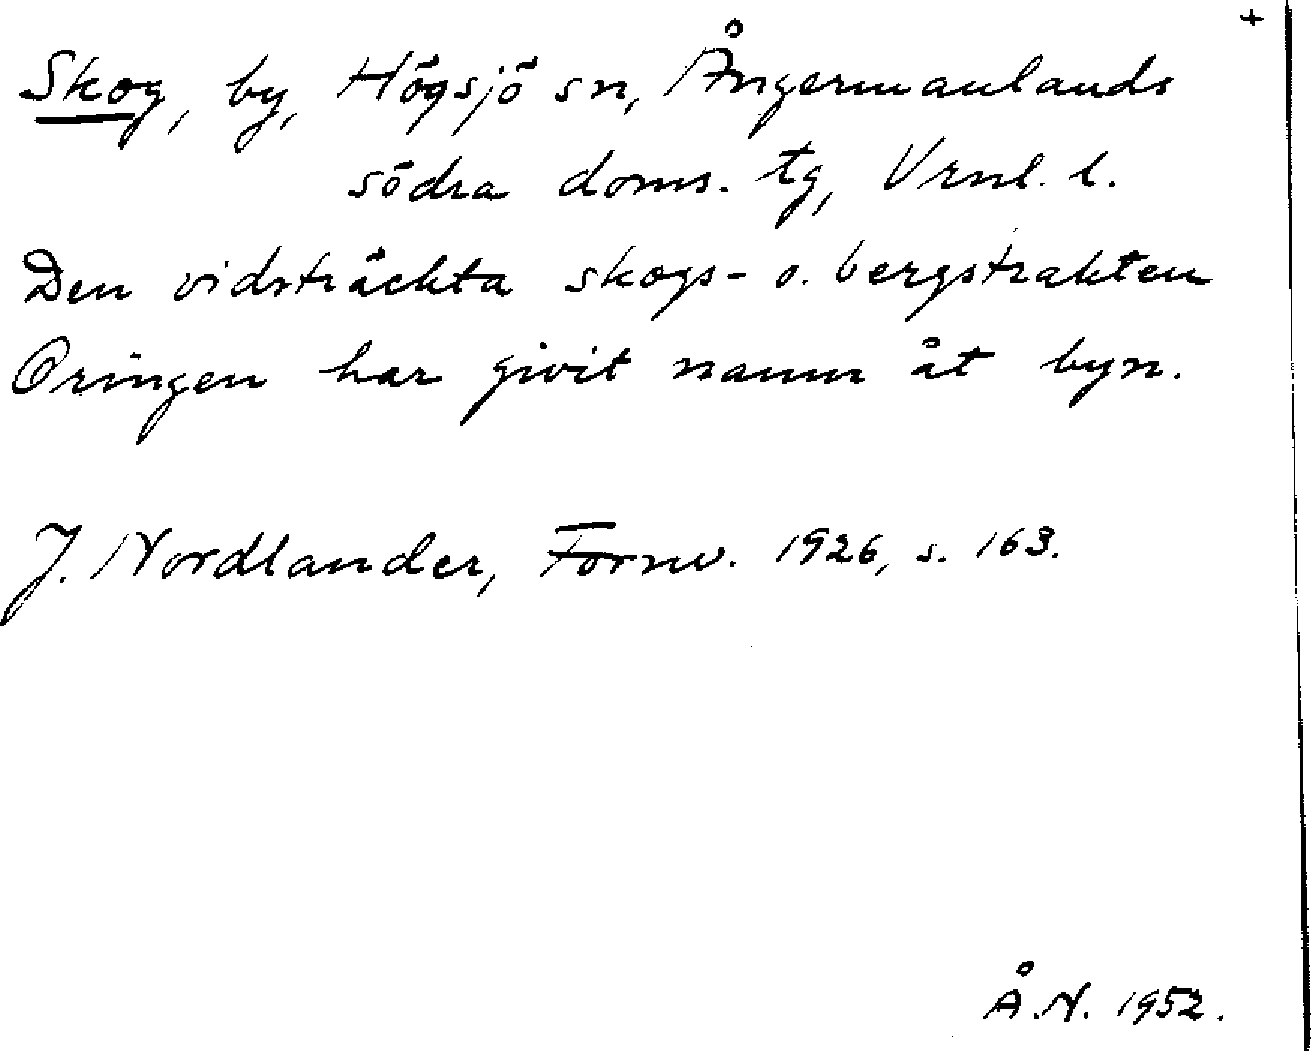 +
Skog, by, Högsjö sn, Ångermanlands
södra doms. tg, Vrnl. l.
Den vidsträckta skogs- o. bergstrakten
Oringen har givit namn åt byn.
J. Nordlander, Fornv. 1926, s. 163.
Å.N. 1952.